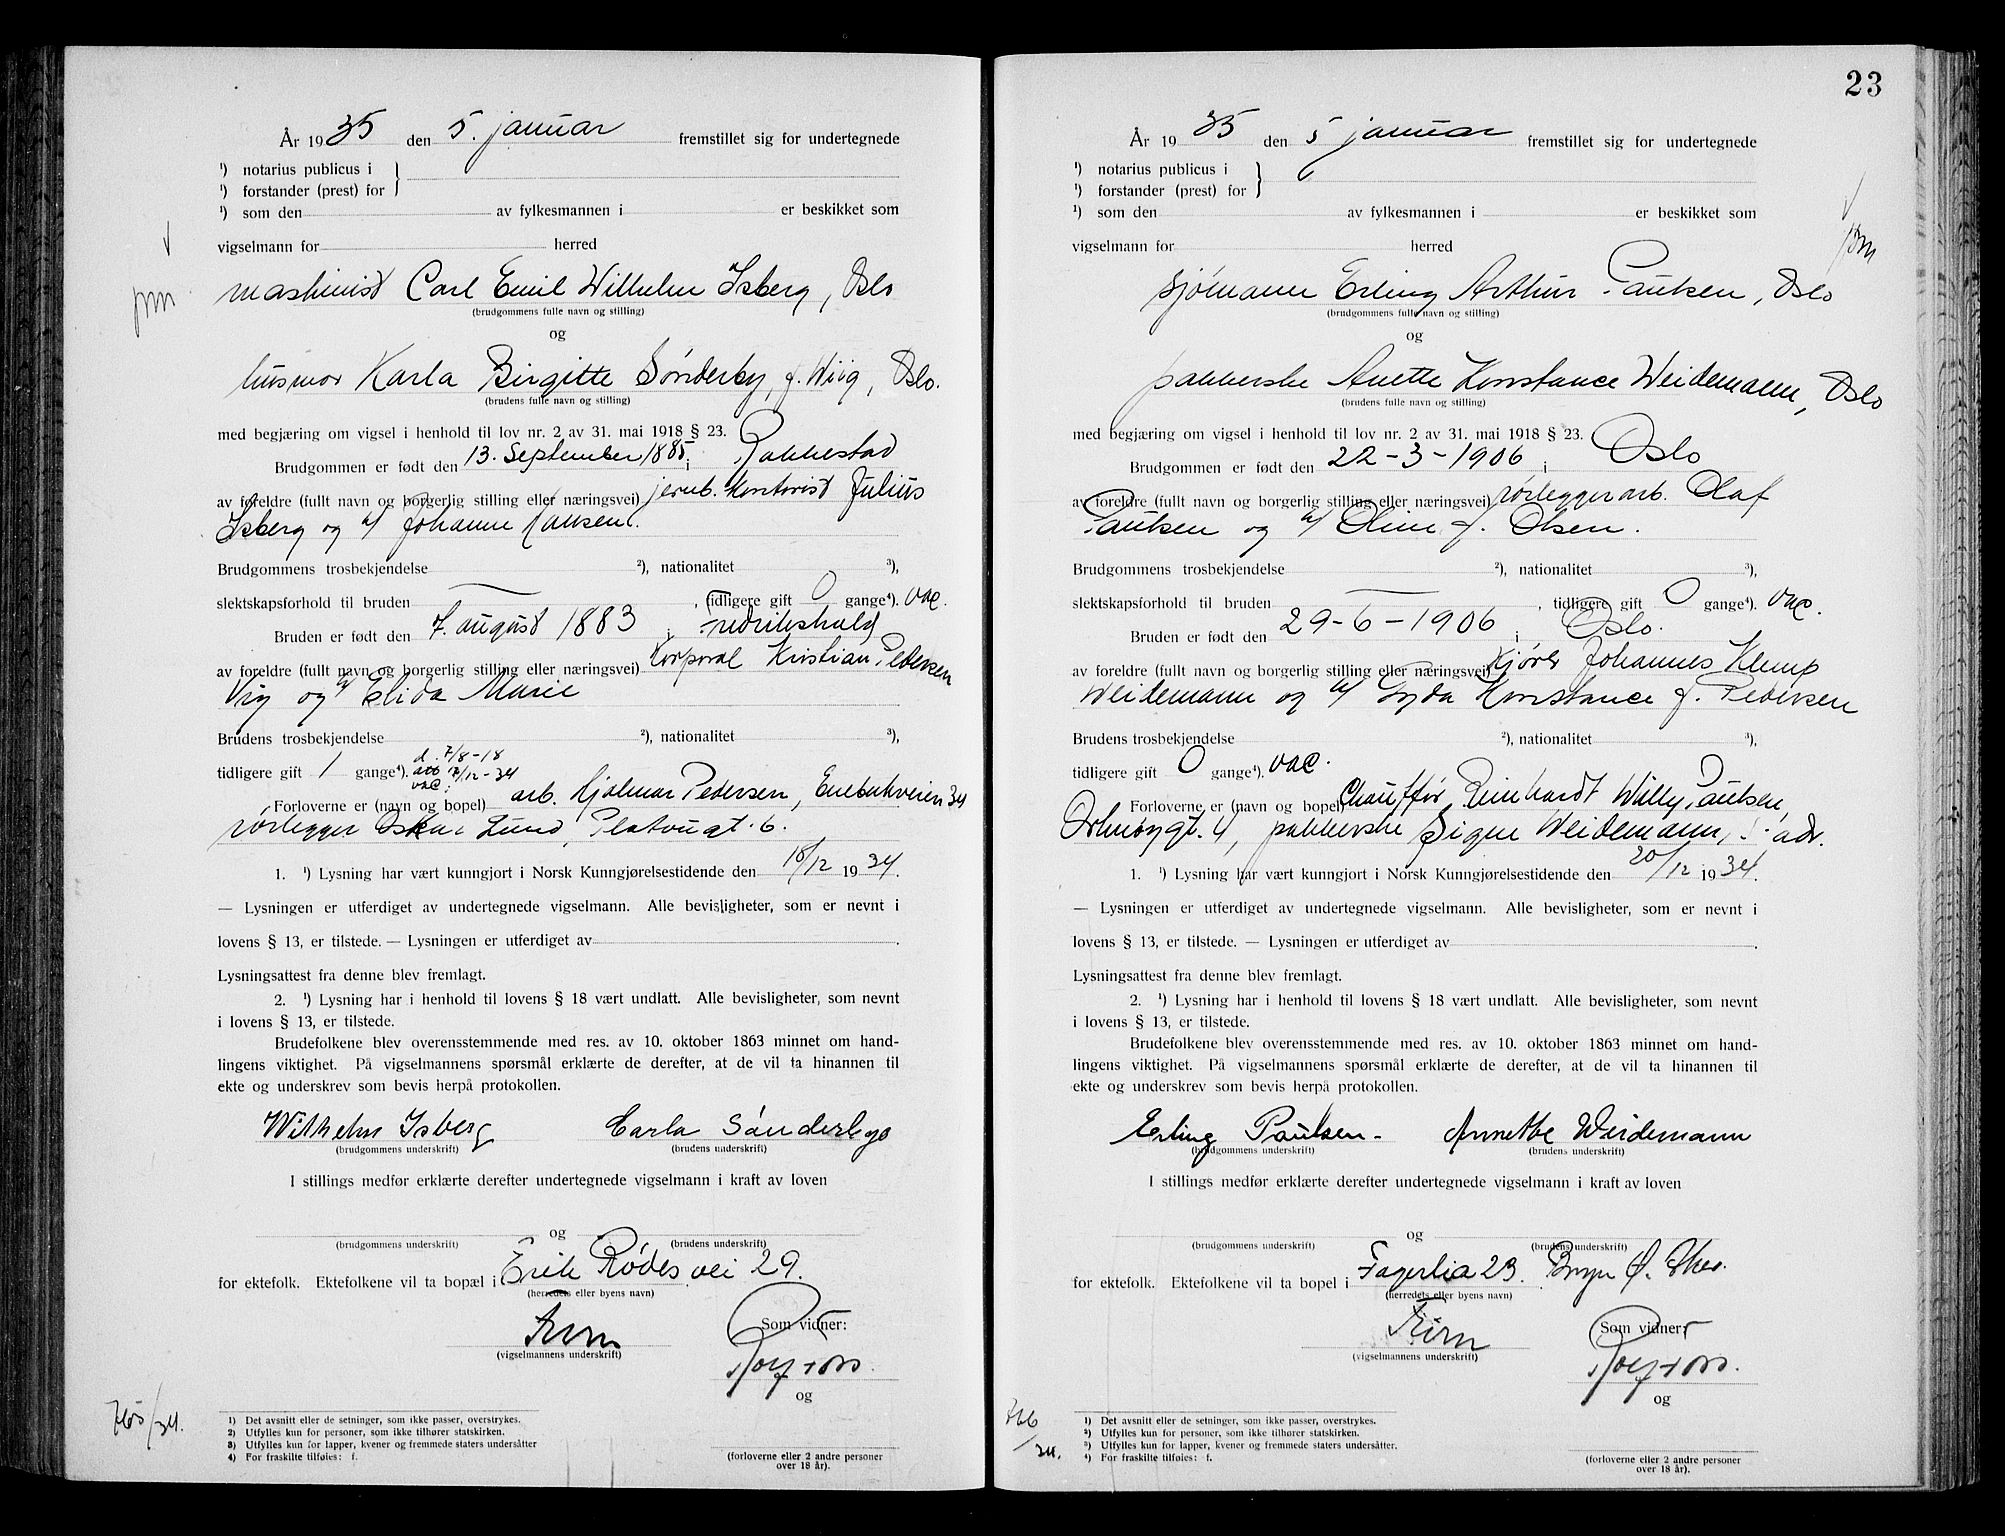 År 1935 den 5. januar fremstillet sig for undertegnede
¹) notarius publicus i
¹) forstander (prest) for
¹) som den av fylkesmannen i er beskikket som
vigselmann for herred
maskinist Carl Emil Wilhelm Isberg, Oslo
(brudgommens fulle navn og stilling)
og
husmor Karla Birgitte Sønderby, f. Wiig, Oslo.
(brudens fulle navn og stilling)
med begjæring om vigsel i henhold til lov nr. 2 av 31. mai 1918 § 23.
Brudgommen er født den 13. September 1885 i Rakkestad
av foreldre (fullt navn og borgerlig stilling eller næringsvei) jernb. kontorist Julius
Isberg og h/ Johanne Hansen.
Brudgommens trosbekjendelse ²), nationalitet ³),
slektskapsforhold til bruden — , tidligere gift 0 gange⁴). vac.
Bruden er født den 7. august 1883 i Fredrikshald
av foreldre (fullt navn og borgerlig stilling eller næringsvei) Korporal Kristian Pedersen
Vig og h/ Elida Marie
Brudens trosbekjendelse ²), nationalitet ³),
tidligere gift 1 gange⁴). d. 7/8-18
att 7/12-34
vac.
Forloverne er (navn og bopel) arb. Hjalmar Pedersen, Enebakveien 34
rørlegger Oskar Lund, Platougt. 6.
1. ¹) Lysning har vært kunngjort i Norsk Kunngjørelsestidende den 18/12 1934.
— Lysningen er utferdiget av undertegnede vigselmann. Alle bevisligheter, som er nevnt i
lovens § 13, er tilstede. — Lysningen er utferdiget av
Lysningsattest fra denne blev fremlagt.
2. ¹) Lysning har i henhold til lovens § 18 vært undlatt. Alle bevisligheter, som nevnt
i lovens § 13, er tilstede.
Brudefolkene blev overensstemmende med res. av 10. oktober 1863 minnet om hand-
lingens viktighet. På vigselmannens spørsmål erklærte de derefter, at de vil ta hinannen til
ekte og underskrev som bevis herpå protokollen.
Wilhelm Isberg Carla Sønderbye
(brudgommens underskrift) (brudens underskrift)
I stillings medfør erklærte derefter undertegnede vigselmann i kraft av loven
og
(brudgommens underskrift) (brudens underskrift)
for ektefolk. Ektefolkene vil ta bopæl i Erik Rødes vei 29.
(herredets eller byens navn)
Som vidner:
(vigselmannens underskrift)
og
765/34.
1) Det avsnitt eller de setninger, som ikke passer, overstrykes.
2) Utfylles kun for personer, som ikke tilhører statskirken.
3) Utfylles kun for lapper, kvener og fremmede staters undersåtter
4) For fraskilte tilføies: f.
(forloverne eller 2 andre personer
over 18 år).
23
År 1935 den 5 januar fremstillet sig for undertegnede
¹) notarius publicus i
¹) forstander (prest) for
¹) som den av fylkesmannen i er beskikket som
vigselmann for herred
sjømann Erling Arthur Paulsen, Oslo
(brudgommens fulle navn og stilling)
og
pakkerske Anette Konstance Weidemann, Oslo
(brudens fulle navn og stilling)
med begjæring om vigsel i henhold til lov nr. 2 av 31. mai 1918 § 23.
Brudgommen er født den 22-3-1906 i Oslo
av foreldre (fullt navn og borgerlig stilling eller næringsvei) rørleggerarb. Olaf
Paulsen og h/ Oline f. Olsen.
Brudgommens trosbekjendelse ²), nationalitet ³),
slektskapsforhold til bruden — , tidligere gift 0 gange⁴). vac.
Bruden er født den 29-6-1906 i Oslo.
av foreldre (fullt navn og borgerlig stilling eller næringsvei) Kjører Johannes Klemp
Weidemann og h/ Lyda Konstance f. Pedersen
Brudens trosbekjendelse ²), nationalitet ³),
tidligere gift 0 gange⁴). vac.
Forloverne er (navn og bopel) Chauffør Reinhardt Willy Paulsen,
4, pakkerske Signe Weidemann, adr.
1. ¹) Lysning har vært kunngjort i Norsk Kunngjørelsestidende den 20/12 1934.
— Lysningen er utferdiget av undertegnede vigselmann. Alle bevisligheter, som er nevnt i
lovens § 13, er tilstede. — Lysningen er utferdiget av
Lysningsattest fra denne blev fremlagt.
2. ¹) Lysning har i henhold til lovens § 18 vært undlatt. Alle bevisligheter, som nevnt
i lovens § 13, er tilstede.
Brudefolkene blev overensstemmende med res. av 10. oktober 1863 minnet om hand-
lingens viktighet. På vigselmannens spørsmål erklærte de derefter, at de vil ta hinannen til
ekte og underskrev som bevis herpå protokollen.
Erling Paulsen. Annette Weidemann
(brudgommens underskrift) (brudens underskrift)
I stillings medfør erklærte derefter undertegnede vigselmann i kraft av loven
og
(brudgommens underskrift) (brudens underskrift)
for ektefolk. Ektefolkene vil ta bopel i Fagerlia 23. Bryn Ø. Aker.
(herredets eller byens navn)
Som vidner:
(vigselmannens underskrift)
og
766/34.
1) Det avsnitt eller de setninger, som ikke passer, overstrykes.
2) Utfylles kun for personer, som ikke tilhører statskirken.
3) Utfylles kun for lapper, kvener og fremmede staters undersåtter.
4) For fraskilte tilføies: f.
(forloverne eller 2 andre personer
over 18 år).